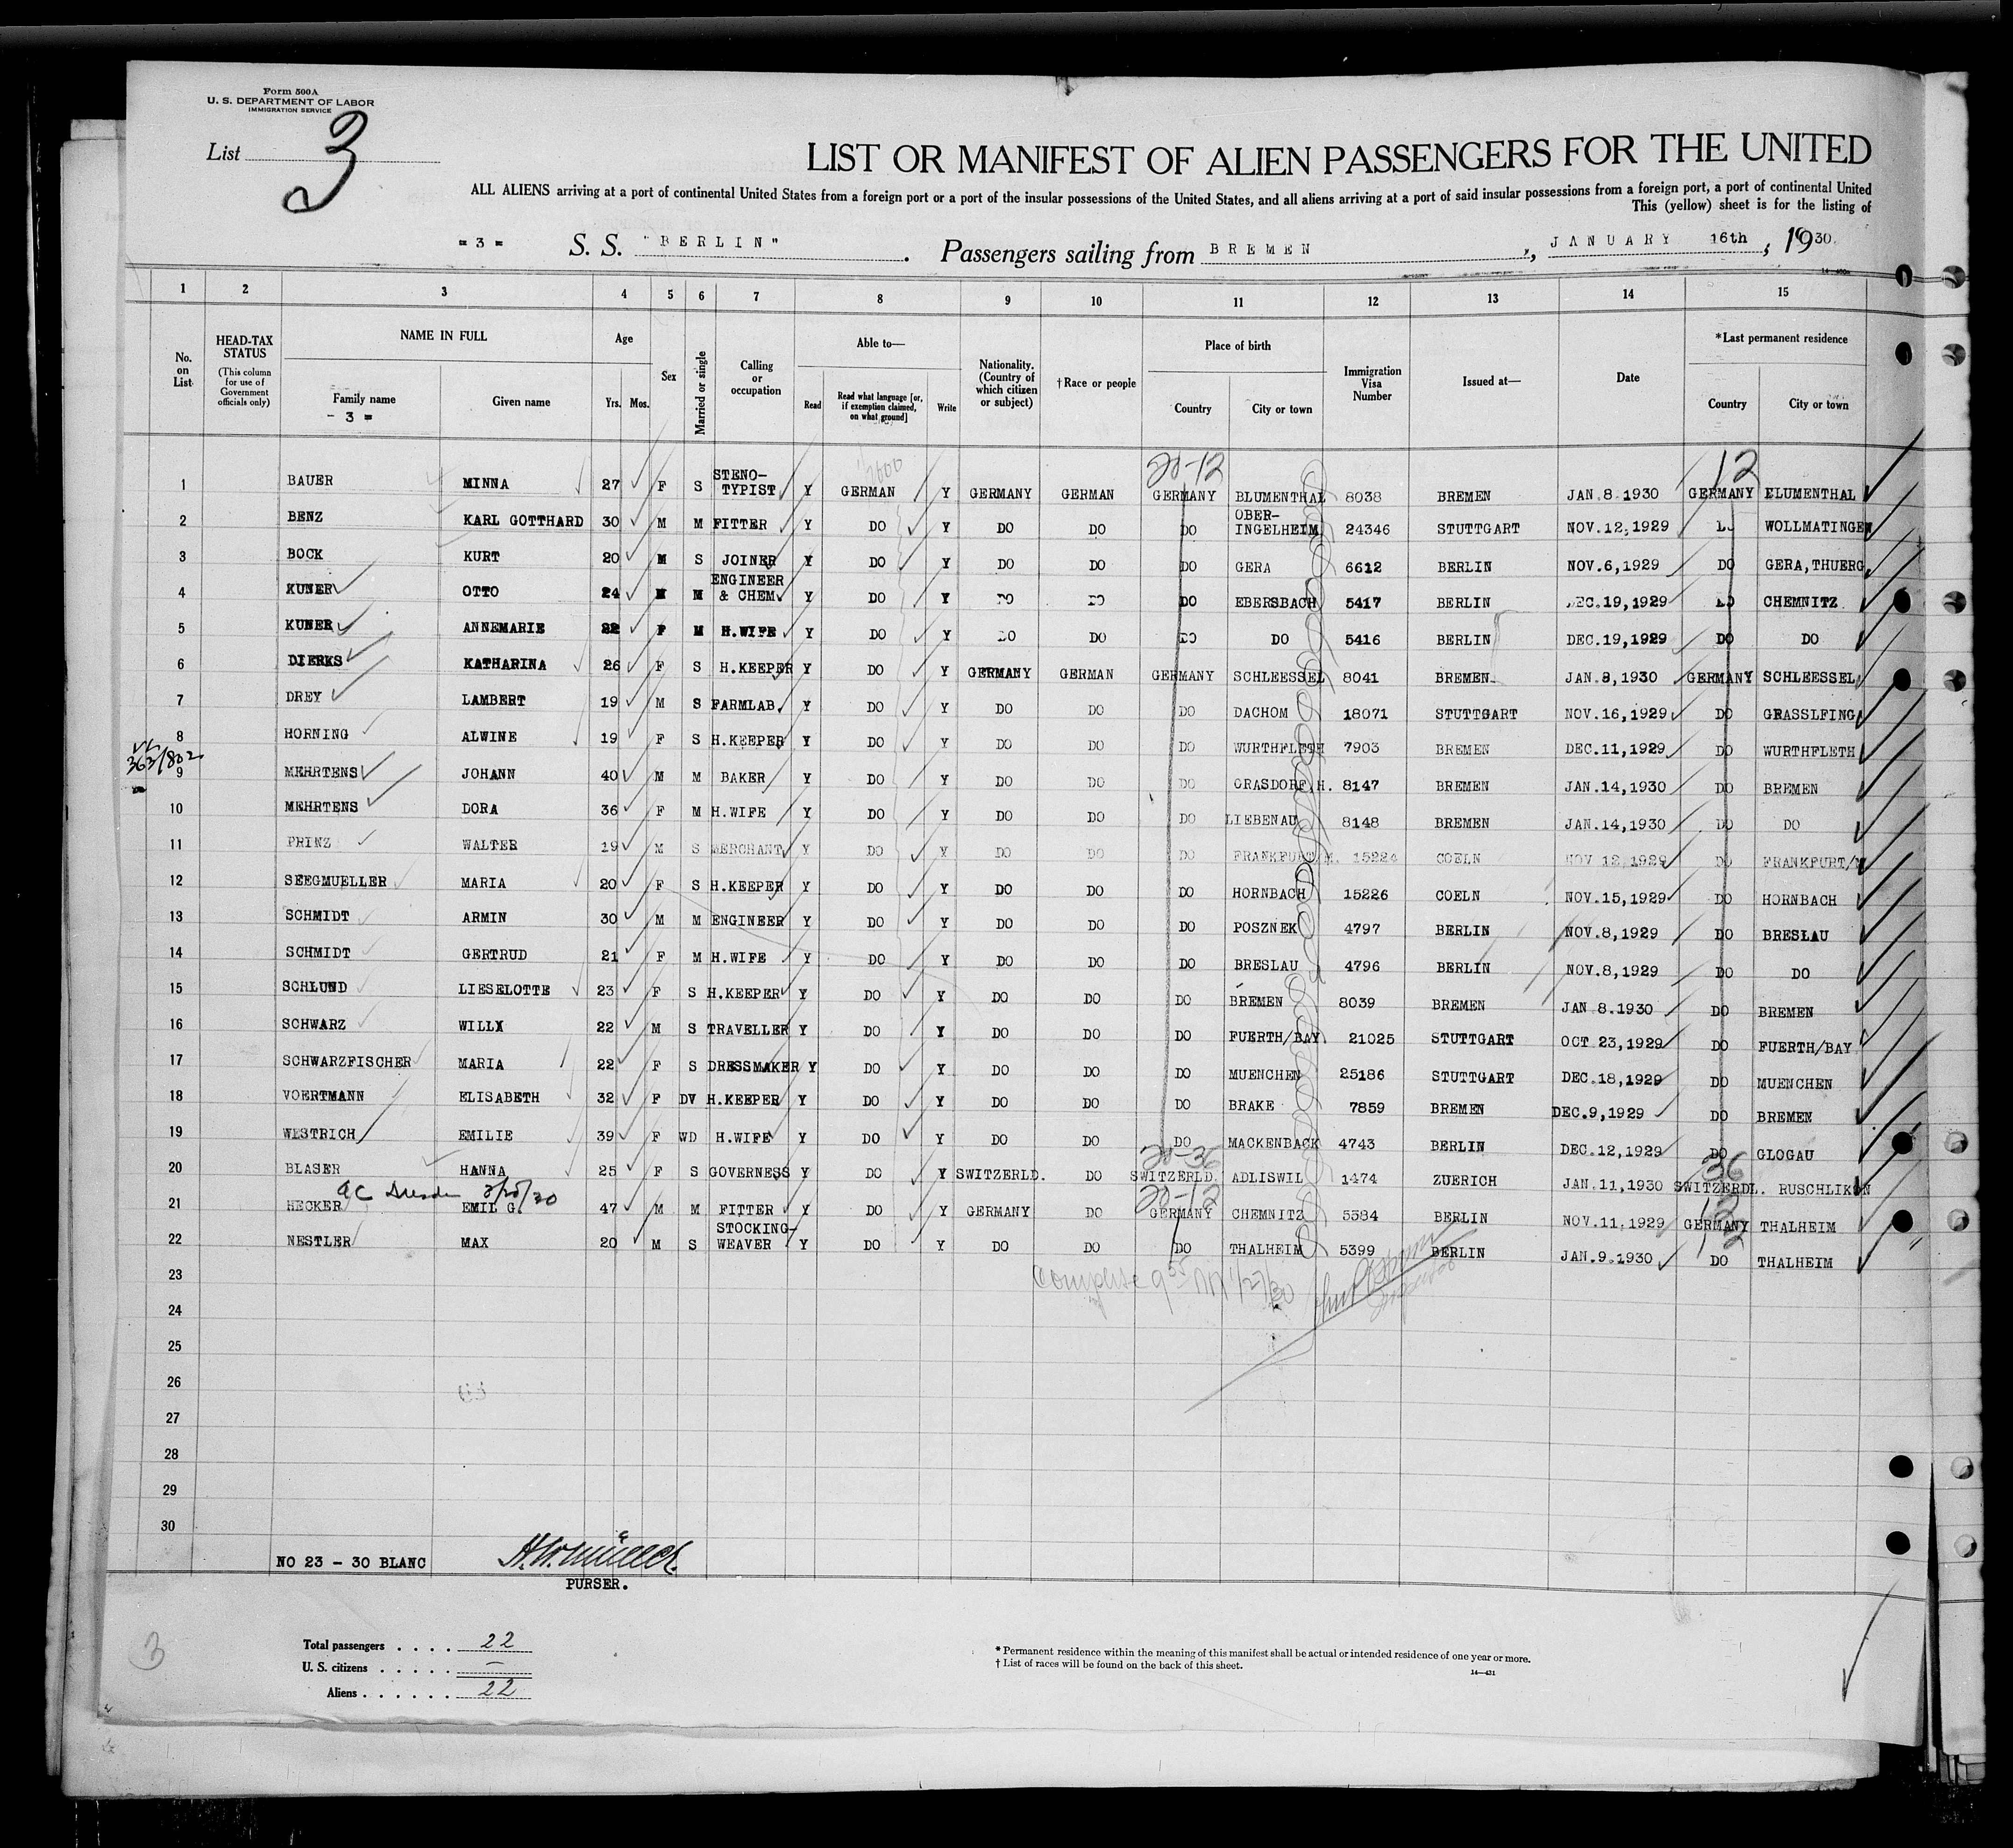 Form 500A
U. S. DEPARTMENT OF LABOR
IMMIGRATION SERVICE
List 3
LIST OR MANIFEST OF ALIEN PASSENGERS FOR THE UNITED
ALL ALIENS arriving at a port of continental United States from a foreign port or a port of the insular possessions of the United States, and all aliens arriving at a port of said insular possessions from a foreign port, a port of continental United
This (yellow) sheet is for the listing of
= 3 = S. S. "BERLIN". Passengers sailing from BREMEN, JANUARY 16th, 1930.
1 2 3 4 5 6 7 8 9 10 11 12 13 14 15
No. on List
HEAD-TAX STATUS (This column for use of Government officials only)
NAME IN FULL Family name Given name
- 3 =
Age Yrs. Mos.
Sex
Married or single
Calling or occupation
Able to— Read Read what language [or, if exemption claimed, on what ground] Write
Nationality. (Country of which citizen or subject)
†Race or people
Place of birth Country City or town
Immigration Visa Number
Issued at—
Date
*Last permanent residence Country City or town
20-12 12
1 BAUER MINNA 27 F S STENO-TYPIST Y GERMAN Y GERMANY GERMAN GERMANY BLUMENTHAL 8038 BREMEN JAN.8.1930 GERMANY BLUMENTHAL
2 BENZ KARL GOTTHARD 30 M M FITTER Y DO Y DO DO DO OBER-INGELHEIM 24346 STUTTGART NOV.12,1929 DO WOLLMATINGEN
3 BOCK KURT 20 M S JOINER Y DO Y DO DO DO GERA 6612 BERLIN NOV.6,1929 DO GERA,THUERG.
4 KUNER OTTO 24 M M ENGINEER & CHEM. Y DO Y DO DO DO EBERSBACH 5417 BERLIN DEC.19,1929 DO CHEMNITZ
5 KUNER ANNEMARIE 22 F M H.WIFE Y DO Y DO DO DO DO 5416 BERLIN DEC.19,1929 DO DO
6 DIERKS KATHARINA 26 F S H.KEEPER Y DO Y GERMANY GERMAN GERMANY SCHLEESSEL 8041 BREMEN JAN.8,1930 GERMANY SCHLEESSEL
7 DREY LAMBERT 19 M S FARMLAB. Y DO Y DO DO DO DACHOM 18071 STUTTGART NOV.16,1929 DO GRASSLFING
8 HORNING ALWINE 19 F S H.KEEPER Y DO Y DO DO DO WURTHFLETH 7903 BREMEN DEC.11,1929 DO WURTHFLETH
363/802
9 MEHRTENS JOHANN 40 M M BAKER Y DO Y DO DO DO GRASDORF,H. 8147 BREMEN JAN.14,1930 DO BREMEN
10 MEHRTENS DORA 36 F M H.WIFE Y DO Y DO DO DO LIEBENAU 8148 BREMEN JAN.14,1930 DO DO
11 PRINZ WALTER 19 M S MERCHANT Y DO Y DO DO DO FRANKFURT/M. 15224 COELN NOV 12,1929 DO FRANKFURT/M
12 SEEGMUELLER MARIA 20 F S H.KEEPER Y DO Y DO DO DO HORNBACH 15226 COELN NOV.15,1929 DO HORNBACH
13 SCHMIDT ARMIN 30 M M ENGINEER Y DO Y DO DO DO POSZNEK 4797 BERLIN NOV.8,1929 DO BRESLAU
14 SCHMIDT GERTRUD 21 F M H.WIFE Y DO Y DO DO DO BRESLAU 4796 BERLIN NOV.8,1929 DO DO
15 SCHLUND LIESELOTTE 23 F S H.KEEPER Y DO Y DO DO DO BREMEN 8039 BREMEN JAN 8.1930 DO BREMEN
16 SCHWARZ WILLX 22 M S TRAVELLER Y DO Y DO DO DO FUERTH/BAY. 21025 STUTTGART OCT 23,1929 DO FUERTH/BAY
17 SCHWARZFISCHER MARIA 22 F S DRESSMAKER Y DO Y DO DO DO MUENCHEN 25186 STUTTGART DEC.18,1929 DO MUENCHEN
18 VOERTMANN ELISABETH 32 F DV H.KEEPER Y DO Y DO DO DO BRAKE 7859 BREMEN DEC.9,1929 DO BREMEN
19 WESTRICH EMILIE 39 F WD H.WIFE Y DO Y DO DO DO MACKENBACK 4743 BERLIN DEC.12,1929 DO GLOGAU
20-36 36
20 BLASER HANNA 25 F S GOVERNESS Y DO Y SWITZERLD. DO SWITZERLD. ADLISWIL 1474 ZUERICH JAN.11,1930 SWITZERDL. RUSCHLIKON
20-12 12
21 HECKER EMIL G. 47 M M FITTER Y DO Y GERMANY DO GERMANY CHEMNITZ 5584 BERLIN NOV.11,1929 GERMANY THALHEIM
22 NESTLER MAX 20 M S STOCKING-WEAVER Y DO Y DO DO DO THALHEIM 5399 BERLIN JAN.9.1930 DO THALHEIM
23 Complete
24
25
26
27
28
29
30
NO 23 - 30 BLANC
PURSER.
3
Total passengers . . . . 22
U. S. citizens . . . . . —
Aliens . . . . . . 22
* Permanent residence within the meaning of this manifest shall be actual or intended residence of one year or more.
† List of races will be found on the back of this sheet.
14—431